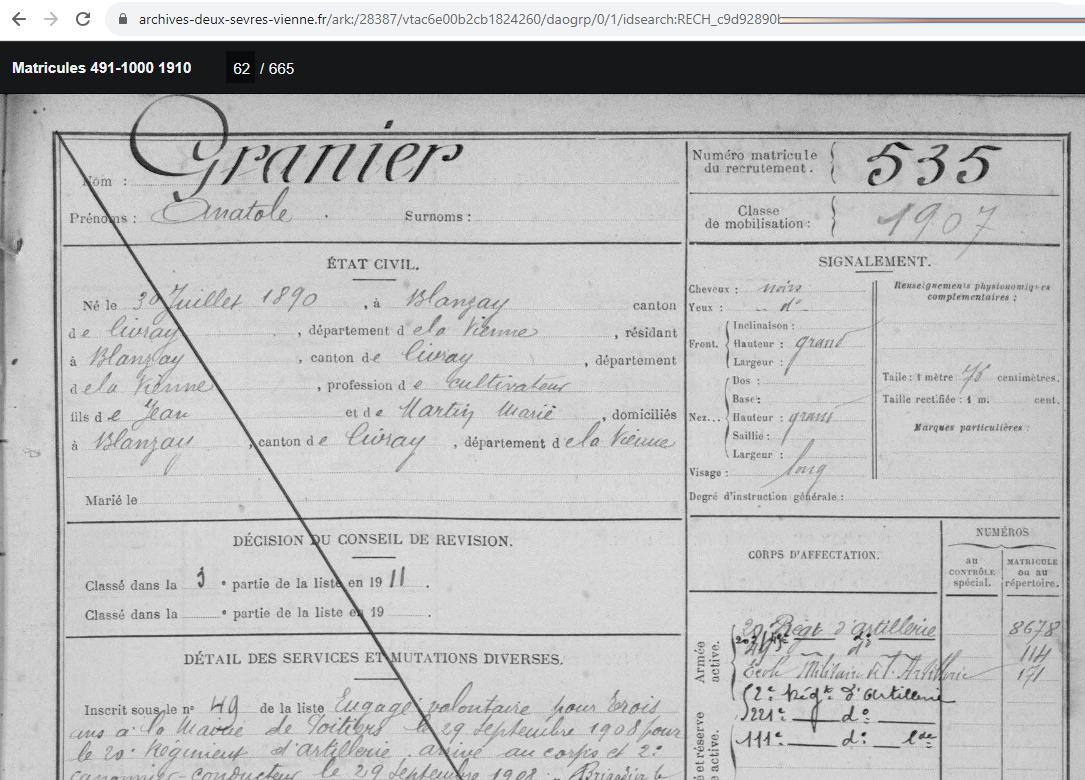 archives-deux-sevres-vienne.fr/ark:/28387/vtac6e00b2c1824260/daogrp/0/1/idsearch:RECH_c9d92890
Matricules 491-1000 1910 62 / 665
Nom : Granier
Prénoms : Anatole . Surnoms :
Numéro matricule du recrutement. 535
Classe de mobilisation : 1907
ÉTAT CIVIL.
Né le 30 Juillet 1890, à Blanzay canton
de Civray, département de la Vienne, résidant
à Blanzay, canton de Civray, département
de la Vienne, profession de cultivateur
fils de Jean et de Martin Marie, domiciliés
à Blanzay, canton de Civray, département de la Vienne
Marié le
SIGNALEMENT.
Cheveux : noirs
Yeux : d°
Front. Inclinaison :
Hauteur : grand
Largeur :
Nez... Dos :
Base :
Hauteur : grand
Saillie :
Largeur :
Visage : long
Degré d'instruction générale :
Renseignements physionomiques
complémentaires :
Taille : 1 mètre 75 centimètres.
Taille rectifiée : 1 m. cent.
Marques particulières :
DÉCISION DU CONSEIL DE REVISION.
Classé dans la 3e partie de la liste en 1911.
Classé dans la e partie de la liste en 19 .
CORPS D'AFFECTATION.
NUMÉROS
au CONTRÔLE spécial.
MATRICULE ou au répertoire.
Armée active.
20e Régt d'artillerie 8678
49e d° 114
Ecole Militaire d'Artillerie 171
2e Régt d'artillerie
221e d°
111e d° Lde
et réserve
e active.
DÉTAIL DES SERVICES ET MUTATIONS DIVERSES.
Inscrit sous le n° 49 de la liste Engagé volontaire pour trois
ans à la Mairie de Poitiers le 29 septembre 1908 pour
le 20e Régiment d'artillerie arrivé au corps et 2e
canonnier conducteur le 29 septembre 1908. Brigadier le